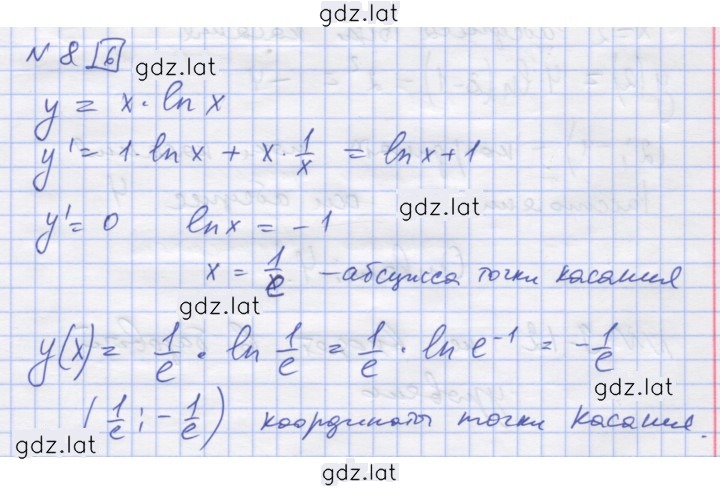 gdz.lat
N 8 б
gdz.lat
y = x · ln x
y' = 1 · ln x + x · 1/x = ln x + 1
gdz.lat
y' = 0 ln x = - 1
x = 1/e – абсцисса точки касания
gdz.lat
y(x) = 1/e · ln 1/e = 1/e · ln e⁻¹ = - 1/e
gdz.lat
(1/e ; - 1/e) координаты точки касания.
gdz.lat
gdz.lat